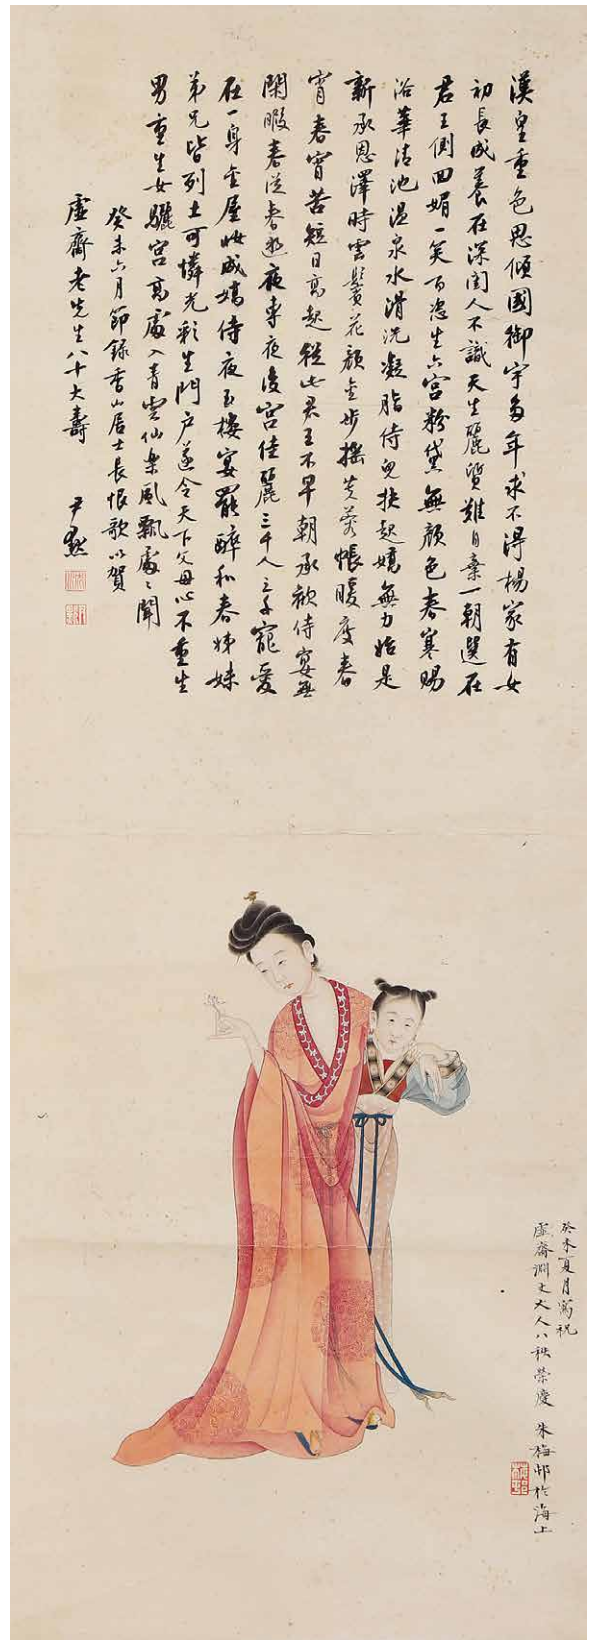 漢皇重色思傾國御宇多年求不得楊家有女
初長成養在深閨人不識天生麗質難自棄一朝選在
君王側回媚一笑百恣生六宮粉黛無顏色春寒賜
浴華清池溫泉水滑洗凝脂侍兒扶起嬌無力始是
新承恩澤時雲鬢花顏金步搖芙蓉帳暖度春
宵春宵苦短日高起從此君王不早朝承歡侍宴無
閑暇春從春遊夜專夜後宮佳麗三千人三千寵愛
在一身金屋妝成嬌侍夜玉樓宴罷醉和春姊妹
弟兄皆列土可憐光彩生門戶遂令天下父母心不重生
男重生女驪宮高處入青雲仙樂風飄處〻聞
癸未六月節錄香山居士長恨歌以賀
虛齋老先生八十大壽 尹默
癸未夏月寫祝
虛齋淵丈大人八秩榮慶 朱梅邨於海上